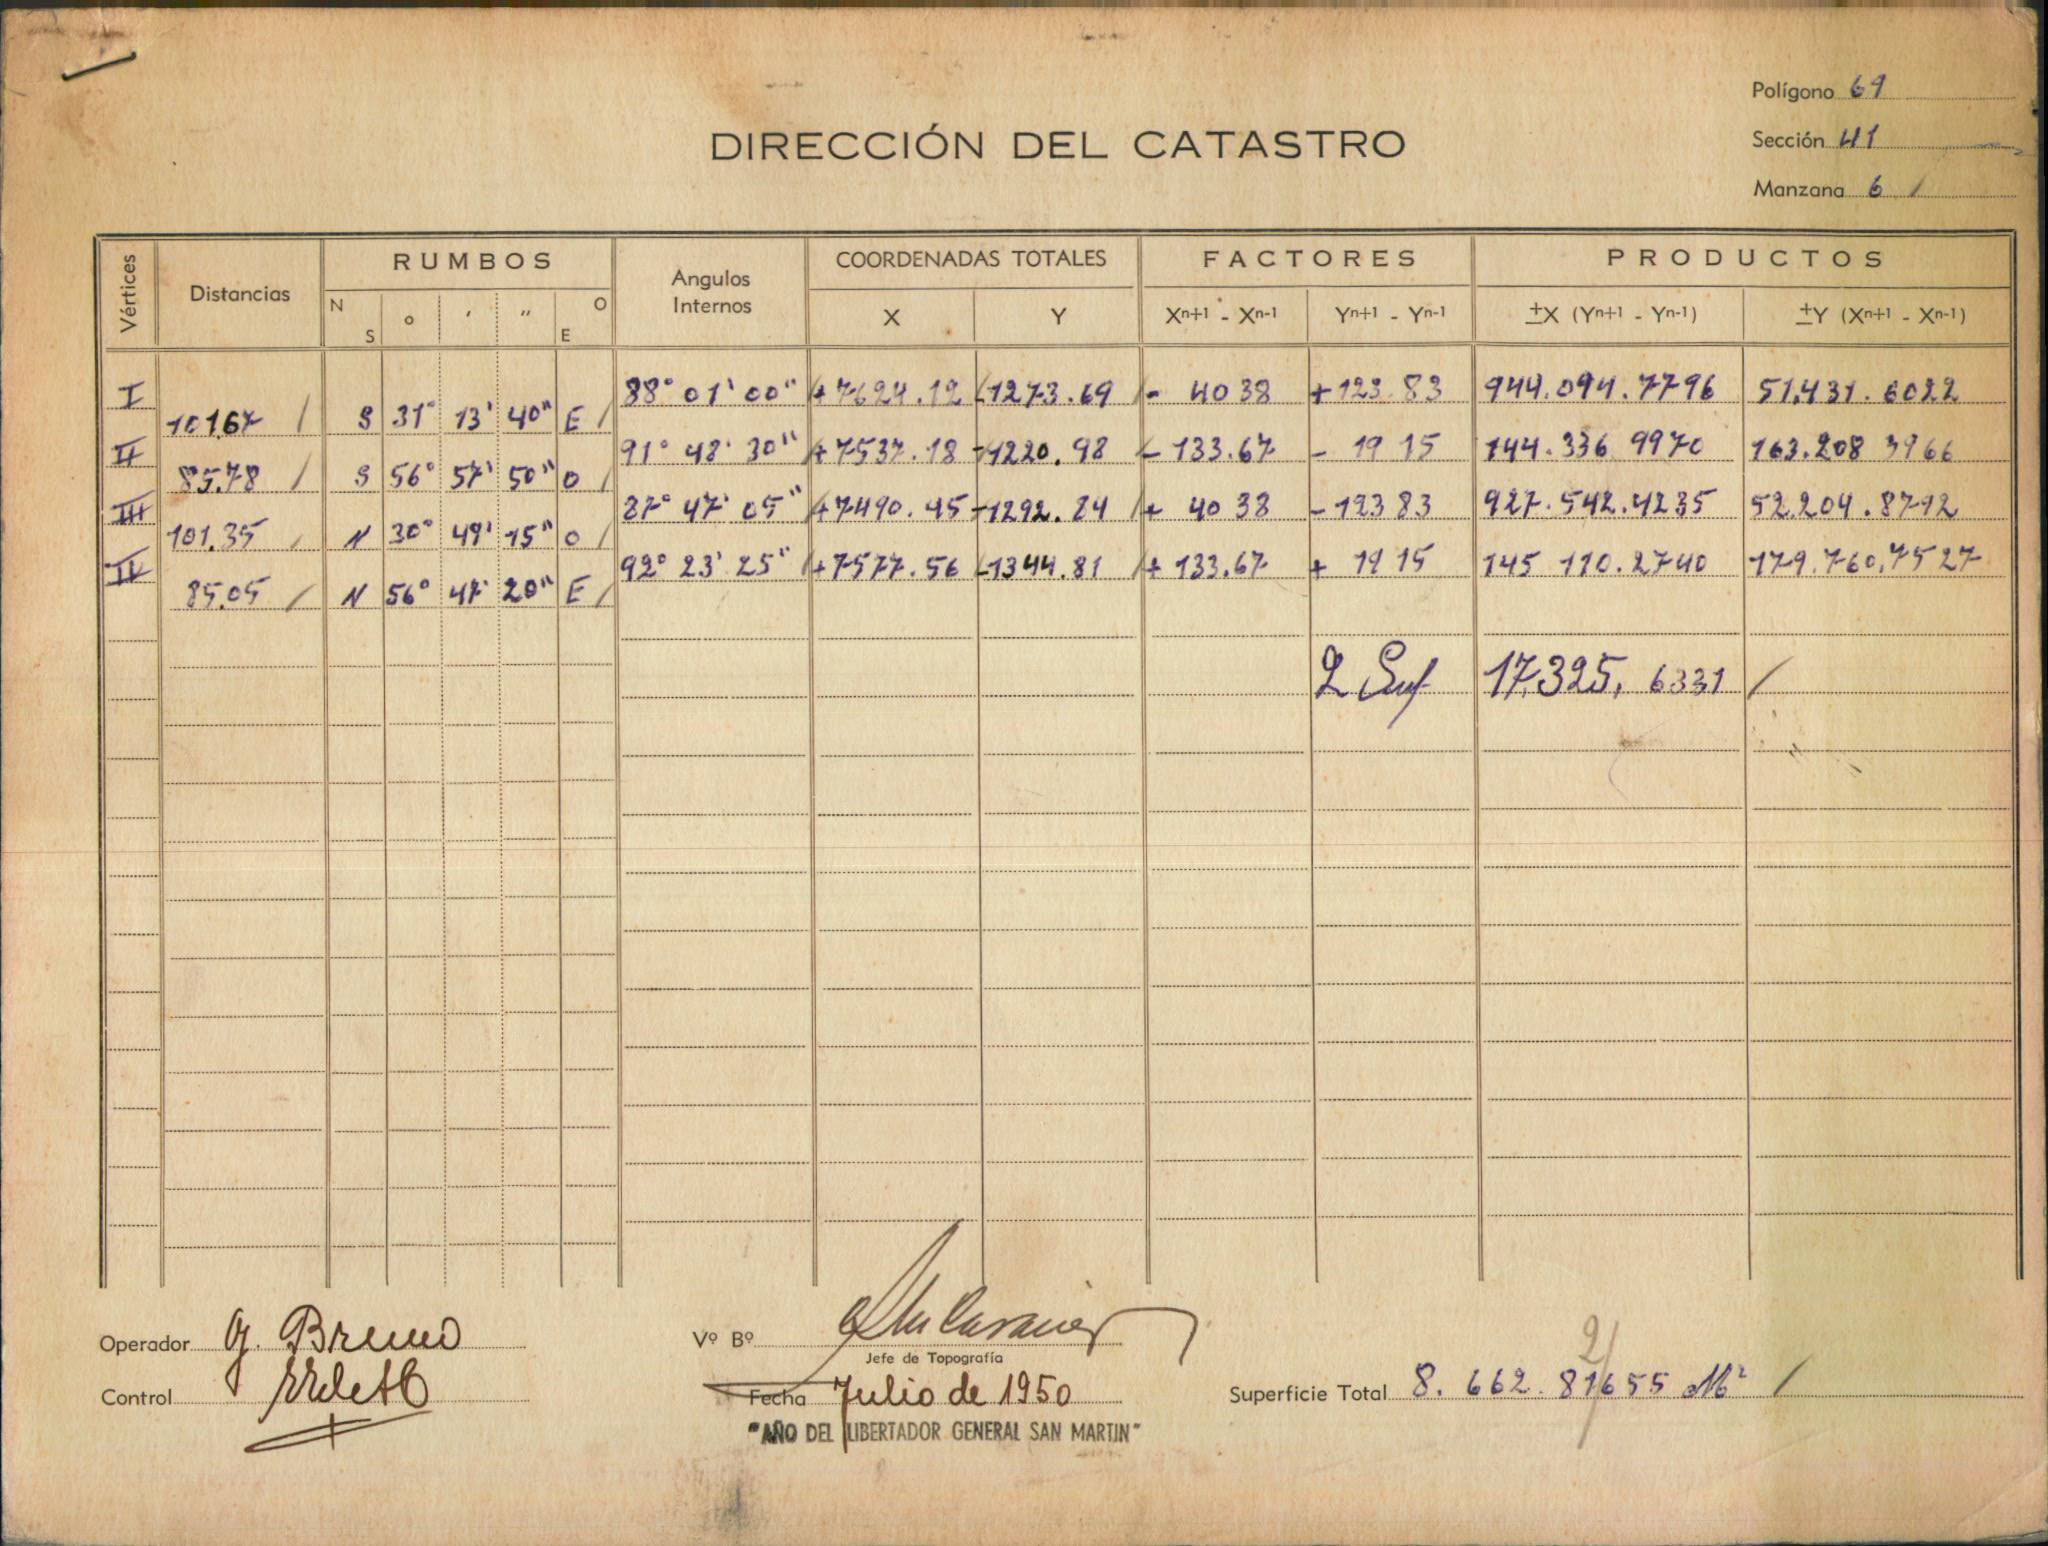 Polígono 69
DIRECCIÓN DEL CATASTRO
Sección 41
Manzana 6 /
Vértices Distancias RUMBOS Angulos Internos COORDENADAS TOTALES FACTORES PRODUCTOS
N S ° ' " O E X Y Xn+1 - Xn-1 Yn+1 - Yn-1 ±X (Yn+1 - Yn-1) ±Y (Xn+1 - Xn-1)
I 88° 01' 00" +7624.12 -1273.69 - 40 38 +123.83 944.094.7796 51.431.6022
101.67 / S 31° 13' 40" E /
II 91° 48' 30" +7537.18 -1220.98 - 133.67 - 19 15 144.336 9970 163.208 3966
85.78 / S 56° 57' 50" O /
III 87° 47' 05" +7490.45 -1292.84 + 40 38 -123 83 927.542.4235 52.204.8792
101.35 / N 30° 49' 15" O /
IV 92° 23' 25" +7577.56 -1344.81 + 133.67 + 19 15 145 110.2740 179.760.7527
85.05 / N 56° 47' 20" E /
2 Sup 17.325. 6331 /
Operador G. Bruno
Vº Bº
Jefe de Topografía
Control
Fecha Julio de 1950
Superficie Total 8. 662. 81655 M² /
2/
"AÑO DEL LIBERTADOR GENERAL SAN MARTIN"